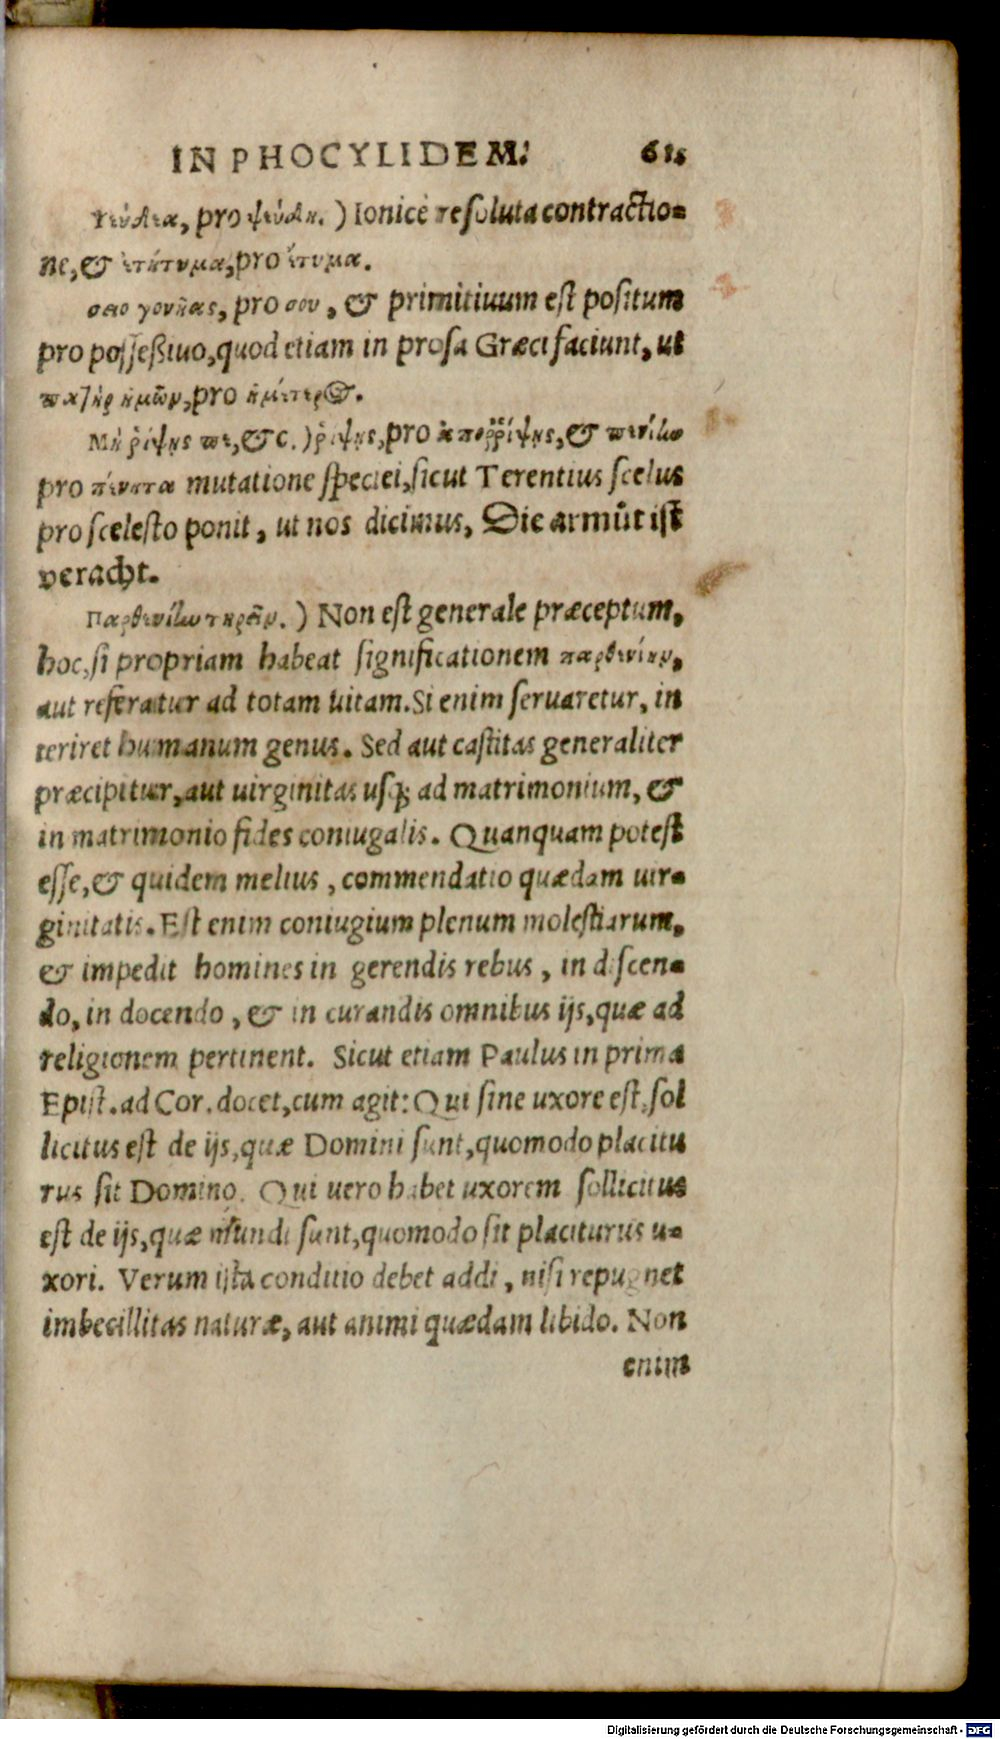 IN PHOCYLIDEM. 61
Ψεύδεα, pro ψεύδη.) Ionicè resoluta contractio=
ne, & ἐτήτυμα, pro ἔτυμα.
σειο γονῆας, pro σου, & primitiuum est positum
pro possessiuo, quod etiam in prosa Græci faciunt, ut
πατὴρ ἡμῶν, pro ἡμέτερος.
Μὴ ῥίψῃς πε, &c.) ῥίψῃς, pro ἀπορρίψῃς, & πενίην
pro πένητα mutatione speciei, sicut Terentius scelus
pro scelesto ponit, ut nos dicimus, Die armůt ist
veracht.
Παρθενίην τηρεῖν.) Non est generale præceptum,
hoc, si propriam habeat significationem παρθενίην,
aut referatur ad totam uitam. Si enim seruaretur, in
teriret humanum genus. Sed aut castitas generaliter
præcipitur, aut uirginitas usq; ad matrimonium, &
in matrimonio fides coniugalis. Quanquam potest
esse, & quidem melius, commendatio quædam uir=
ginitatis. Est enim coniugium plenum molestiarum,
& impedit homines in gerendis rebus, in discen=
do, in docendo, & in curandis omnibus ijs, quæ ad
religionem pertinent. Sicut etiam Paulus in prima
Epist. ad Cor. docet, cum agit: Qui sine uxore est, sol
licitus est de ijs, quæ Domini sunt, quomodo placitu
rus sit Domino. Qui uero habet uxorem sollicitus
est de ijs, quæ mundi sunt, quomodo sit placiturus u=
xori. Verum ista conditio debet addi, nisi repugnet
imbecillitas naturæ, aut animi quædam libido. Non
enim
Digitalisierung gefördert durch die Deutsche Forschungsgemeinschaft - DFG